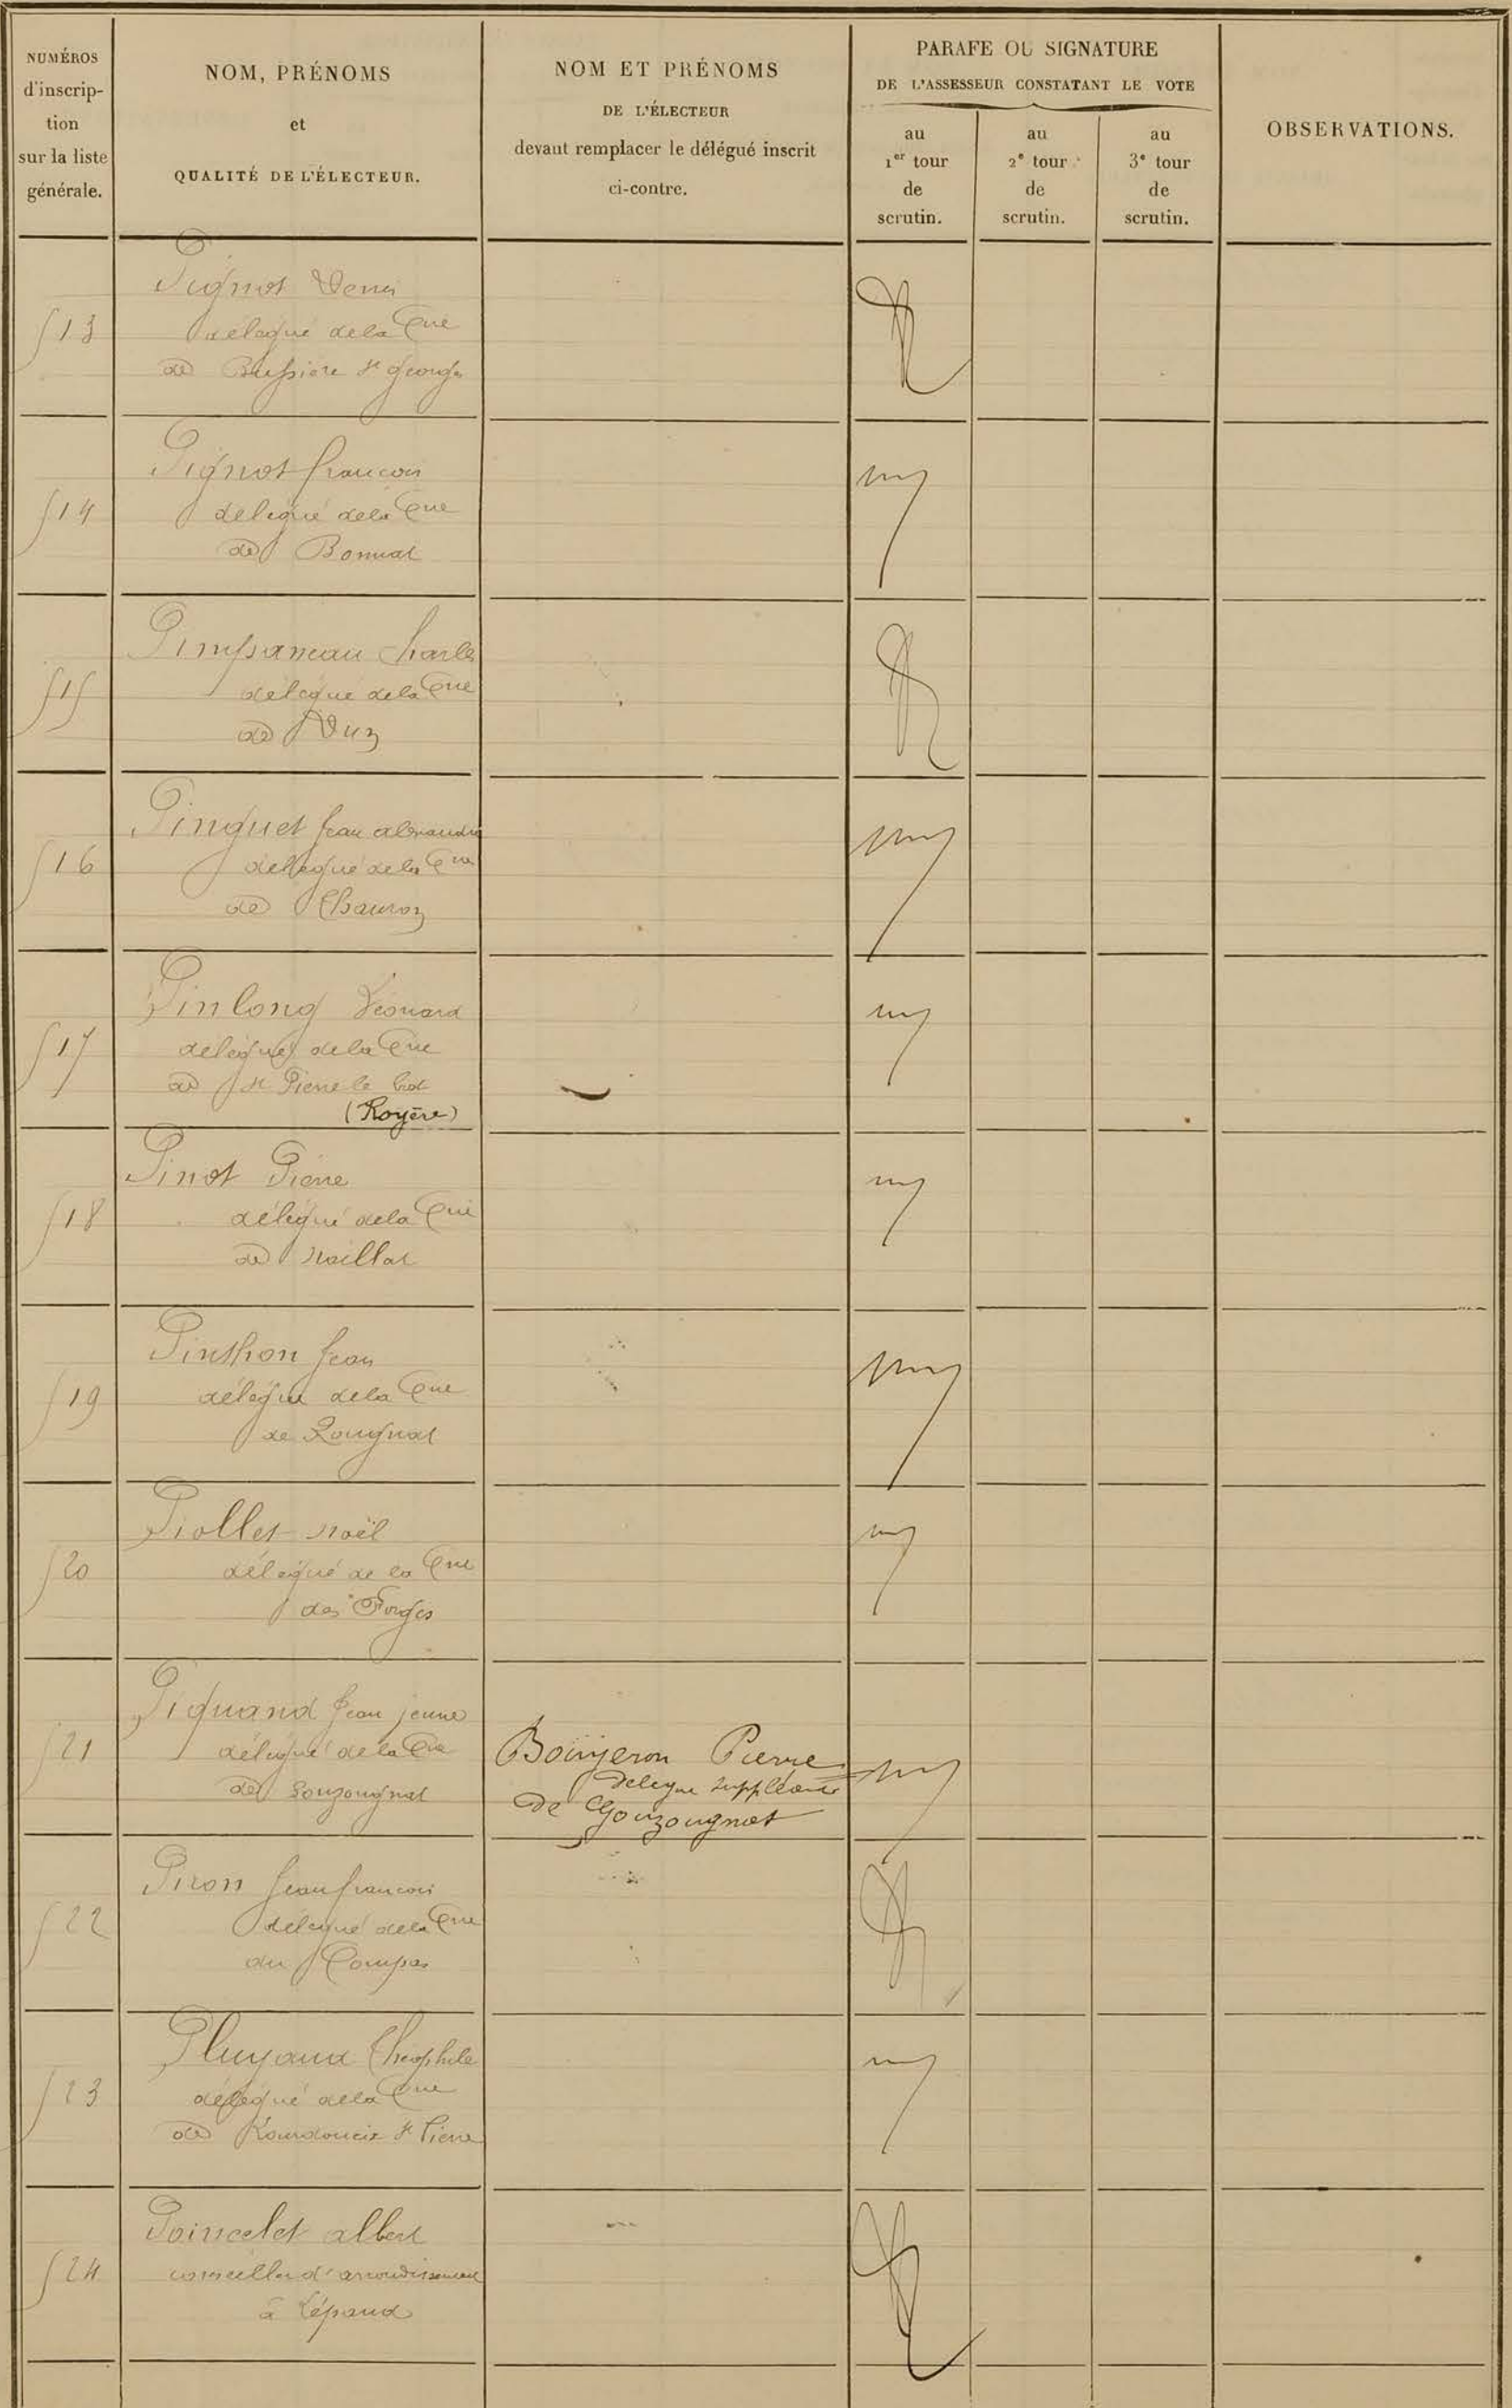 NUMÉROS
d'inscrip-
tion
sur la liste
générale.
NOM, PRÉNOMS
et
QUALITÉ DE L'ÉLECTEUR.
NOM ET PRÉNOMS
DE L'ÉLECTEUR
devant remplacer le délégué inscrit
ci-contre.
PARAFE OU SIGNATURE
DE L'ASSESSEUR CONSTATANT LE VOTE
au
1er tour
de
scrutin.
au
2e tour
de
scrutin.
au
3e tour
de
scrutin.
OBSERVATIONS.
513
Pignot Denis
délégué de la Cne
de Bussière St Georges
514
Pignot francois
délégué de la Cne
de Bonnat
515
Pimpaneau Charles
délégué de la Cne
de Nuz
516
Pinguet Jean alexandre
délégué de la Cne
de Thauron
517
Pinlong Léonard
délégué de la Cne
de St Pierre le bost
(Royère)
518
Pinot Pierre
délégué de la Cne
de Naillat
519
Pinthon Jean
délégué de la Cne
de Rougnat
520
Piollet Noël
délégué de la Cne
des Forges
521
Piquand Jean jeune
délégué de la Cne
de Gouzougnat
Bougeron Pierre
délégué suppléant
de Gouzougnat
522
Piron Jean francois
délégué de la Cne
du Compas
523
Pluyaud Théophile
délégué de la Cne
de St Pierre
524
Poincelet albert
conseiller d'arrondissement
à Lépaud